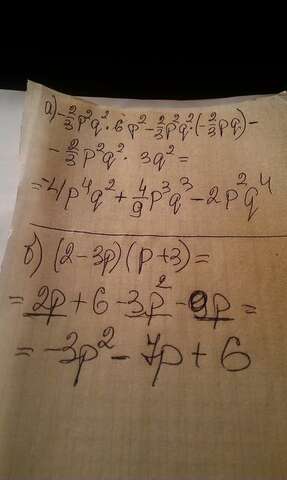 а) -2/3p²q²·6p² - 2/3p²q²·(-2/3pq) -
- 2/3p²q²·3q² =
= -4p⁴q² + 4/9p³q³ - 2p²q⁴
б) (2-3p)(p+3) =
= 2p + 6 - 3p² - 9p =
= -3p² - 7p + 6